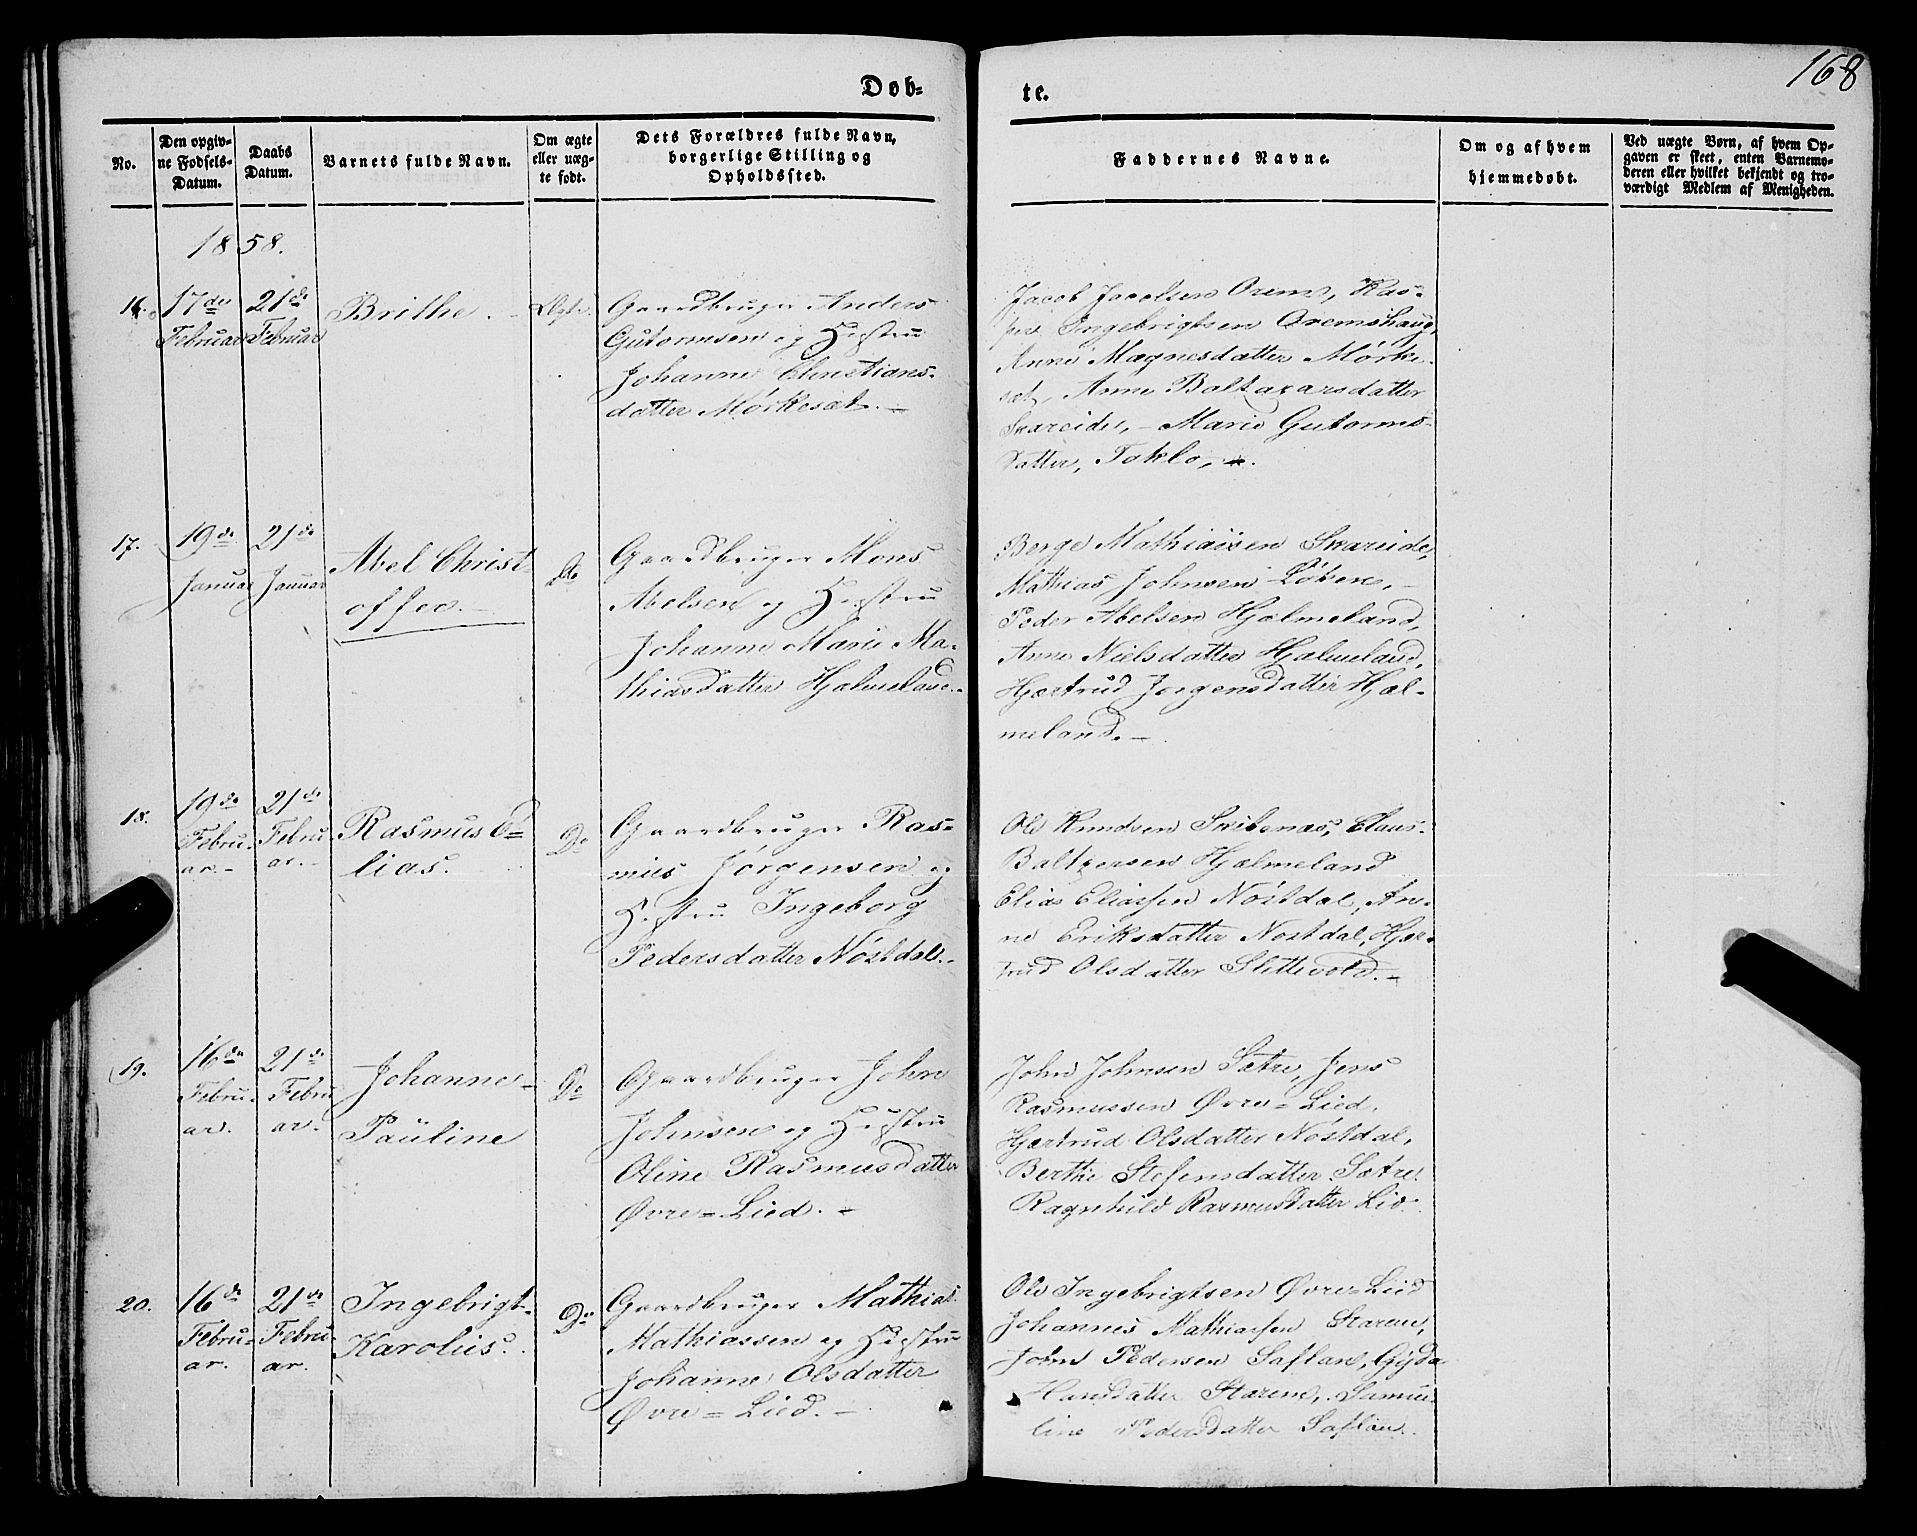 168
Døb-
te.
No.
Den opgiv-
ne Fødsels-
Datum.
Daabs
Datum.
Barnets fulde Navn.
Om ægte
eller uæg-
te født.
Dets Forældres fulde Navn,
borgerlige Stilling og
Opholdssted.
Faddernes Navne.
Om og af hvem
hjemmedøbt.
Ved uægte Børn, af hvem Op-
gaven er skeet, enten Barnemo-
deren eller hvilket bekjendt og tro-
værdigt Medlem af Menigheden.
1858.
16.
17de
Februar
21de
Februar
Brithe.
Ægte.
Gaardbruger Anders
Gutormsen og Hustru
Johanne Christians-
datter Mørkesæt.
Jacob Jacobsen Orem, Ras-
Ingebrigtsen Oremshaug,
Anne Magnesdatter Mørke-
sæt, Anne Baltazarsdatter
Skareide, - Marie Gutorms-
datter, Toklo, -.
17.
19de
Januar
21de
Januar
Abel Christ-
offer.
Do
Gaardbruger Mons
Abelsen og Hustru
Johanne Marie Ma-
thiasdatter Hjelmeland.
Børge Mathiassen Skareide,
Mathias Johnsen Løken,
Peder Abelsen Hjelmeland,
Anne Nielsdatter Hjelmeland,
Hjertrud Jørgensdatter Hjel-
meland. -
18.
19de
Febru-
ar. -
21de
Febru-
ar. -
Rasmus E-
lias.
Do
Gaardbruger Ras-
mus Jørgensen og
Hustru Ingeborg
Pedersdatter Nøstdal. -
Ole Knudsen Skibenes, Claus
Baltzersen Hjelmeland
Elias Eliassen Nøstdal, An-
ne Eriksdatter Nøstdal, Hjer-
trud Olsdatter Slettevold. -
19.
16de
Febru-
ar.
21de
Febru
ar.
Johanne
Pauline
Do
Gaardbruger John
Johnsen og Hustru
Oline Rasmusdatter
Øvre-Lied. -
John Johnsen Sætre, Jens
Rasmussen Øvre-Lied,
Hjertrud Olsdatter Nøstdal,
Berthe Stefensdatter Sætre.
Ragnhild Rasmusdatter Lid.
20.
16de
Febru-
ar.
21de
Febru-
ar.
Ingebrigt
Karolus.
Do
Gaardbruger Mathias
Mathiassen og Hustru
Johanne Olsdatter
Øvre-Lied. -
Ole Ingebrigtsen Øvre-Lied
Johannes Mathiassen Starem,
John Pedersen Saflan, Gjyda
Hansdatter Starem, Samue-
line Pedersdatter Saflan.